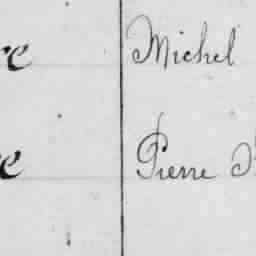 re Michel
e Pierre